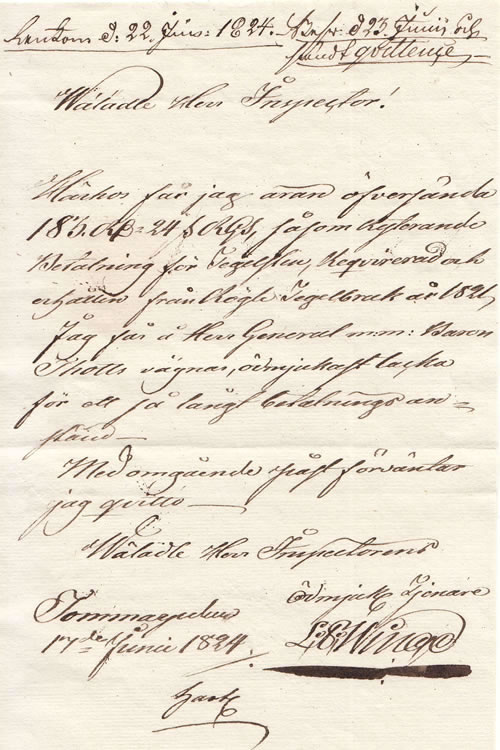 d: 22 Juni: 1824. Besv: d 23 Junii och
sändt qvittence
Wälädle Herr Inspector!
Härhos får jag äran öfversända
18 24 RGs, såsom resterande
Betalning för Tegelsten, Requirerad och
erhållen från Kögle Tegelbruk år 1821,
Jag får å Herr General m:m: Baron
Thotts vägnar, ödmjukast tacka
för ett så långt betalnings an=
stånd
Med omgående påst förväntar
jag qvitto
Wälädle Herr Inspectorens
ödmjuke Tjenare
Tommarp
17de Junii 1824.